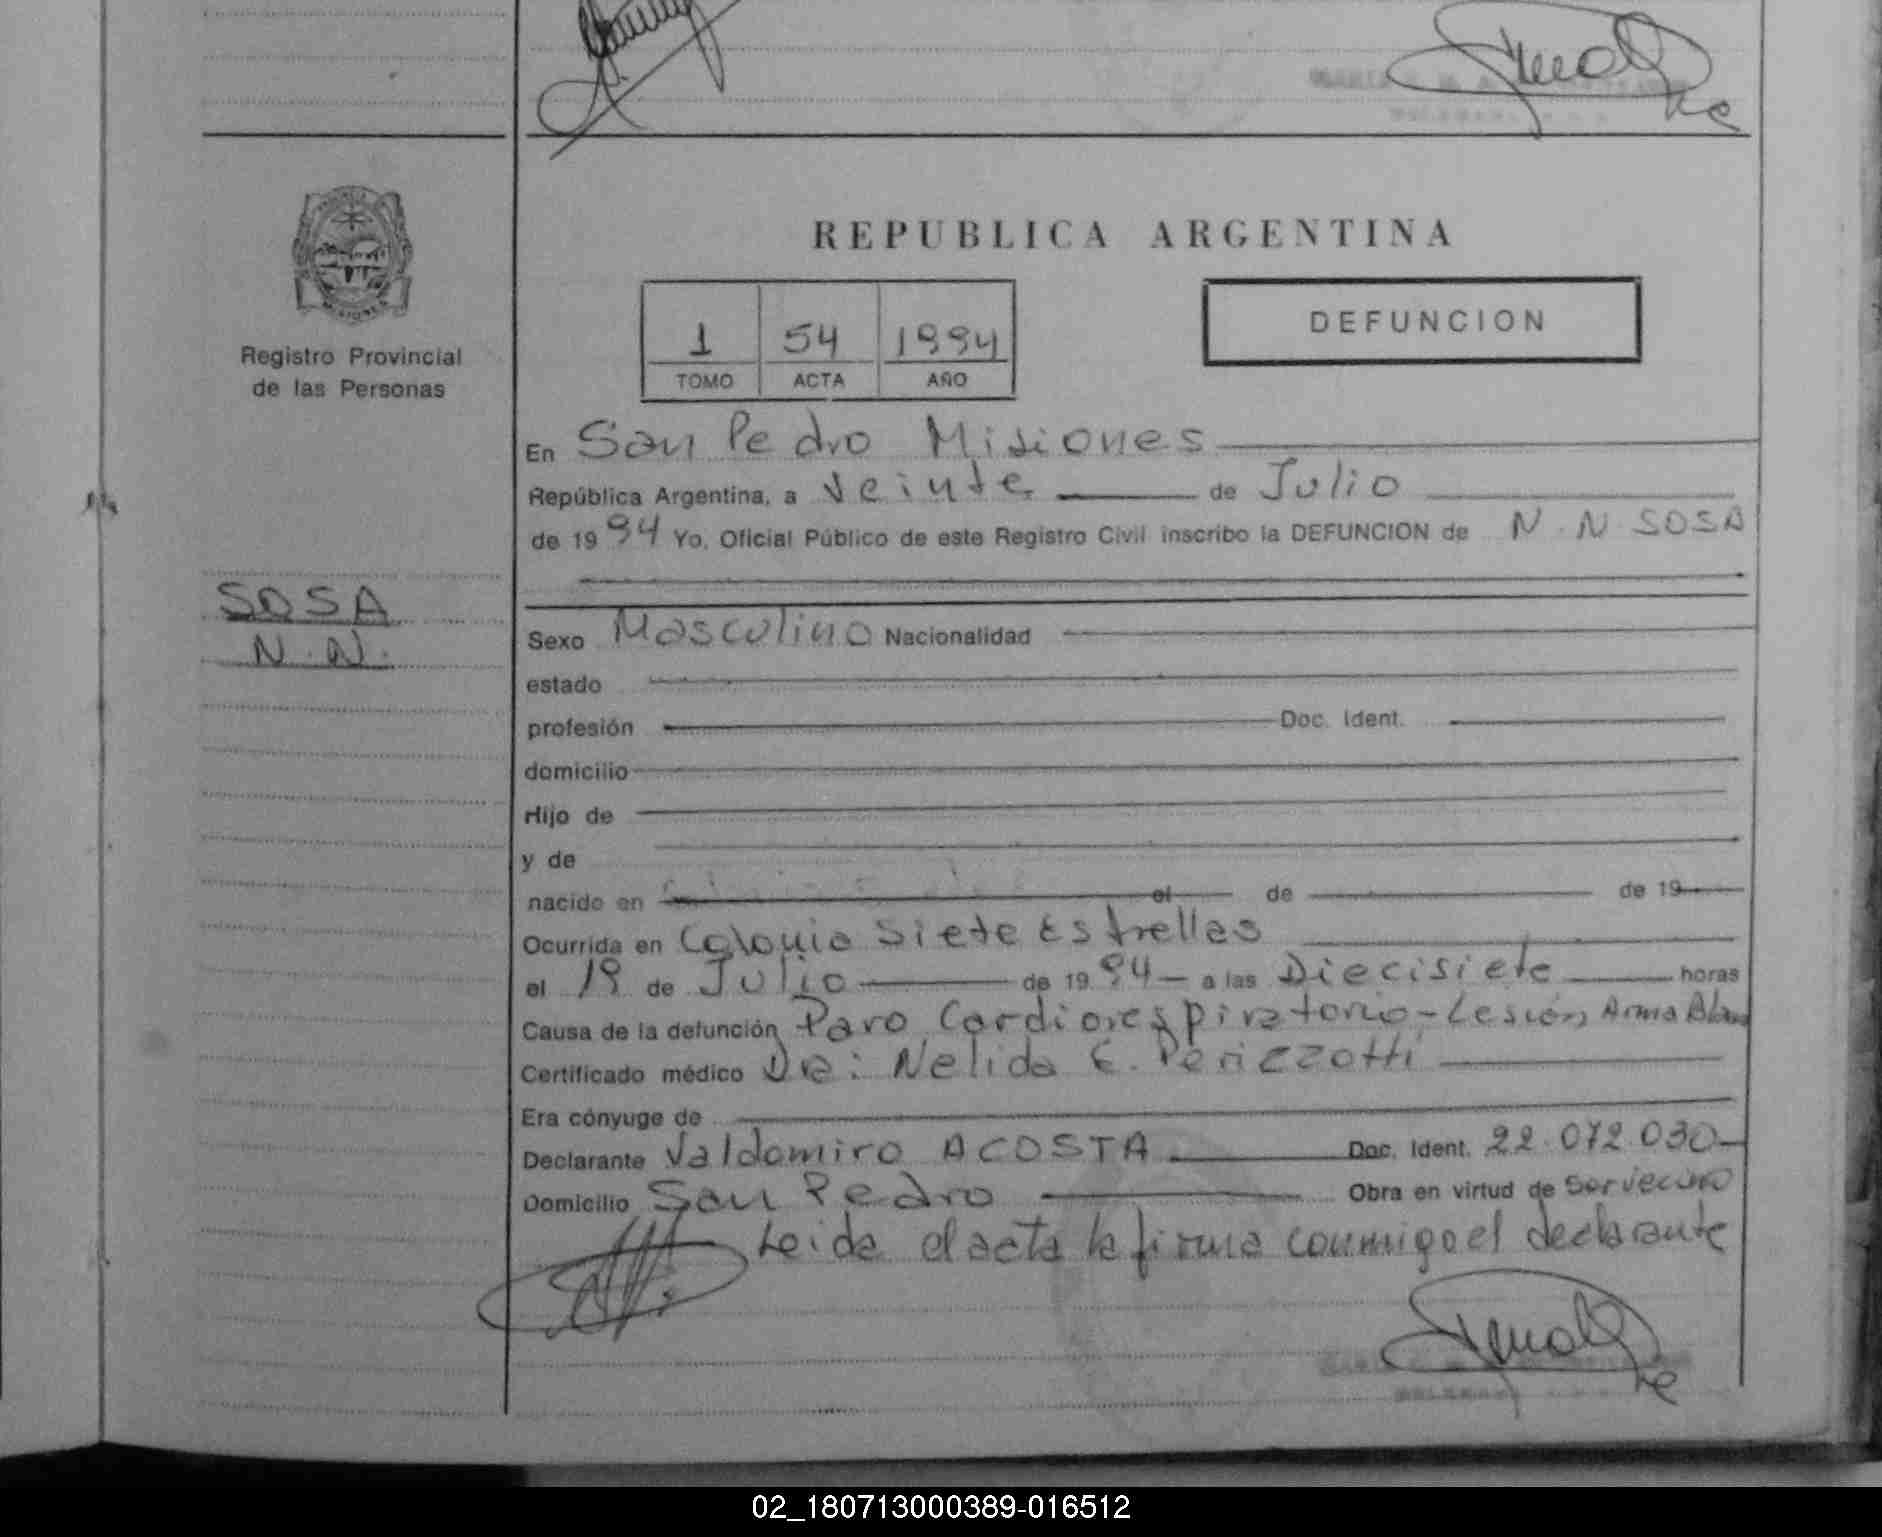 REPUBLICA ARGENTINA
1 54 1994
TOMO ACTA AÑO
DEFUNCION
Registro Provincial
de las Personas
En San Pedro Misiones
República Argentina, a veinte de Julio
de 1994 Yo, Oficial Público de este Registro Civil inscribo la DEFUNCION de N.N SOSA
SOSA
N.N.
Sexo Masculino Nacionalidad
estado
profesión Doc. Ident.
domicilio
Hijo de
y de
nacido en el de de 19
Ocurrida en Colonia Siete Estrellas
el 19 de Julio de 1994 a las Diecisiete horas
Causa de la defunción Paro Cardiorespiratorio - Lesión Arma
Certificado médico Dra: Nelida E. Perizzotti
Era cónyuge de
Declarante Valdomiro ACOSTA Doc. Ident. 22.072.030
Domicilio San Pedro Obra en virtud de
Leida el acta la firma conmigo el declarante
02_180713000389-016512